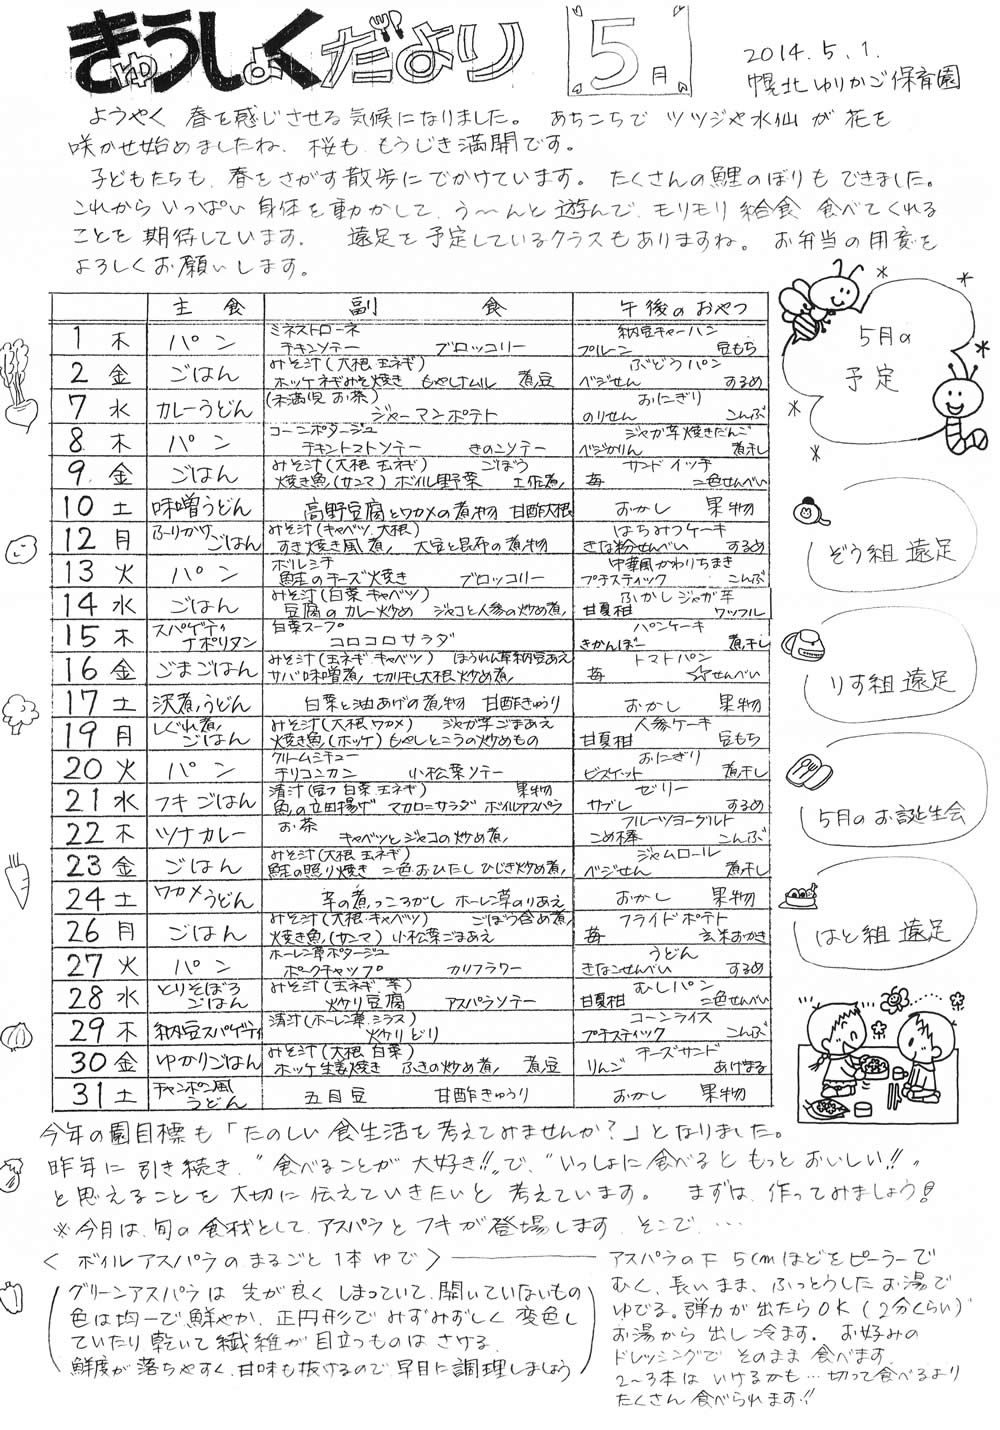 きゅうしょくだより
5月
2014.5.1.
幌北ゆりかご保育園
ようやく 春を感じさせる気候になりました。 あちこちで ツツジや水仙が花を
咲かせ始めましたね。桜も、もうじき満開です。
子どもたちも、春をさがす散歩にでかけています。たくさんの鯉のぼりもできました。
これから いっぱい 身体を動かして、う〜んと 遊んで、モリモリ 給食 食べてくれる
ことを期待しています。 遠足を予定しているクラスもありますね。お弁当の用意を
よろしくお願いします。
主食 副食 午後のおやつ
1 木 パン ミネストローネ チキンソテー ブロッコリー 納豆チャーハン プルーン 豆もち
2 金 ごはん みそ汁(大根 玉ネギ) ホッケネギみそ焼き もやしナムル 煮豆 ぶどうパン ベジせん するめ
7 水 カレーうどん (未満児 お茶) ジャーマンポテト おにぎり のりせん こんぶ
8 木 パン コーンポタージュ チキントマトソテー きのこソテー ジャガ芋焼きだんご ベジかりん 煮干し
9 金 ごはん みそ汁(大根 玉ネギ) ごぼう 焼き魚(サンマ) ボイル野菜 土佐煮 サンドイッチ 苺 二色せんべい
10 土 味噌うどん 高野豆腐とワカメの煮物 甘酢大根 おかし 果物
12 月 ふりかけごはん みそ汁(キャベツ、大根) すき焼き風煮 大豆と昆布の煮物 はちみつケーキ きな粉せんべい するめ
13 火 パン ボルシチ 鮭のチーズ焼き ブロッコリー 中華風かわりちまき プチスティック こんぶ
14 水 ごはん みそ汁(白菜 キャベツ) 豆腐のカレー炒め ジャコと人参の炒め煮 ふかしジャガ芋 甘夏柑 ワッフル
15 木 スパゲティナポリタン 白菜スープ コロコロサラダ パンケーキ きかんぼー 煮干し
16 金 ごまごはん みそ汁(玉ネギ キャベツ) ほうれん草納豆あえ サバ味噌煮 切り干し大根炒め煮 トマトパン 苺 ☆せんべい
17 土 沢煮うどん 白菜と油あげの煮物 甘酢きゅうり おかし 果物
19 月 しぐれ煮ごはん みそ汁(大根、ワカメ) ジャガ芋ごまあえ 焼き魚(ホッケ) もやしとこうの炒めもの 人参ケーキ 甘夏柑 豆もち
20 火 パン クリームシチュー チリコンカン 小松菜ソテー おにぎり ビスケット 煮干し
21 水 フキごはん 清汁(豆フ 白菜 玉ネギ) 果物 魚の立田揚げ マカロニサラダ ボイルアスパラ ゼリー サブレ するめ
22 木 ツナカレー お茶 キャベツとジャコの炒め煮 フルーツヨーグルト こめ棒 こんぶ
23 金 ごはん みそ汁(大根 玉ネギ) 鮭の照り焼き 二色おひたし ひじき炒め煮 ジャムロール ベジせん 煮干し
24 土 ワカメうどん 芋の煮っころがし ホーレン草のりあえ おかし 果物
26 月 ごはん みそ汁(大根、キャベツ) ごぼう含め煮 焼き魚(サンマ) 小松菜ごまあえ フライドポテト 苺 玄米おかき
27 火 パン ホーレン草ポタージュ ポークチャップ カリフラワー うどん きなこせんべい するめ
28 水 とりそぼろごはん みそ汁(玉ネギ 芋) 炒り豆腐 アスパラソテー むしパン 甘夏柑 二色せんべい
29 木 納豆スパゲティ 清汁(ホーレン草、シラス) 炒りどり コーンライス プチスティック こんぶ
30 金 ゆかりごはん みそ汁(大根 白菜) ホッケ生姜焼き ふきの炒め煮 煮豆 チーズサンド りんご あげまる
31 土 チャンポン風うどん 五目豆 甘酢きゅうり おかし 果物
5月の
予定
ぞう組 遠足
りす組 遠足
5月のお誕生会
はと組 遠足
今年の園目標も「たのしい食生活を考えてみませんか?」となりました。
昨年に引き続き、"食べることが 大好き!!"で、"いっしょに食べると もっと おいしい!!"
と思えることを 大切に 伝えていきたいと 考えています。 まずは、作ってみましょう!
※今月は、旬の食材として、アスパラとフキが登場します。そこで、…
〈 ボイルアスパラのまるごと1本ゆで 〉
グリーンアスパラは 先が良く しまっていて、開いていないもの
色は均一で鮮やか、正円形でみずみずしく 変色し
ていたり 乾いて繊維が目立つものは さける。
鮮度が落ちやすく、甘味も抜けるので、早目に調理しましょう
アスパラの下 5cmほどをピーラーで
むく、長いまま、ふっとうしたお湯で
ゆでる。弾力が出たらOK(2分くらい)
お湯から出し冷ます。お好みの
ドレッシングで そのまま 食べます。
2〜3本は いけるかも…切って食べるより
たくさん食べられます!!